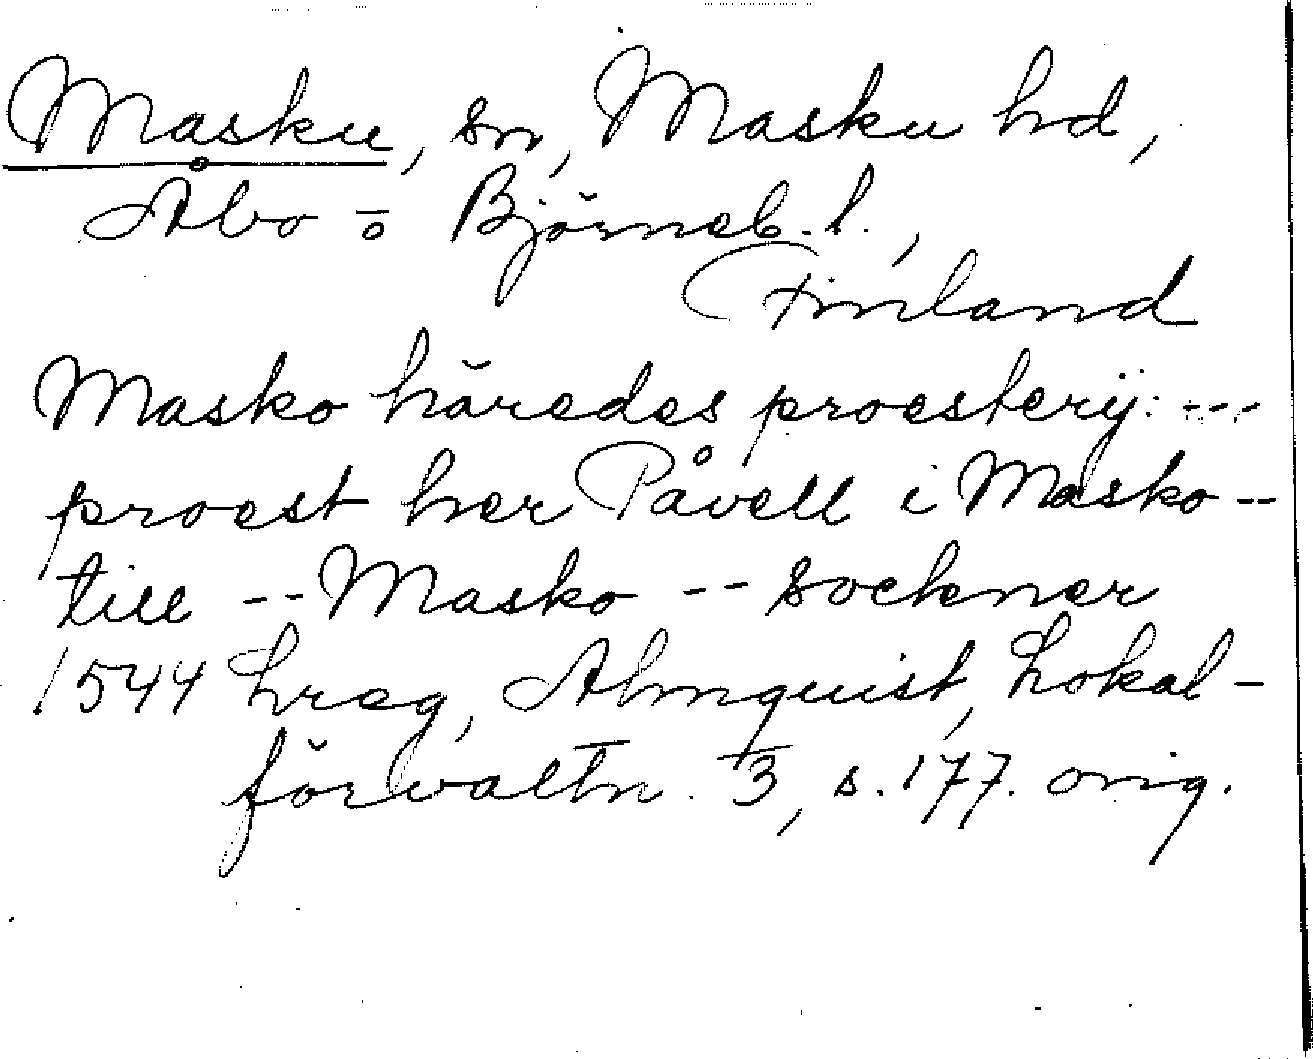 Masku, sn, Masku hd,
Åbo o Björneb. l.,
Finland
Masko häredes proesterij: ---
proest her Påvell i Masko --
till -- Masko -- sockner
1544 Lreg, Almquist, Lokal-
förvaltn. 3, s. 177. orig.